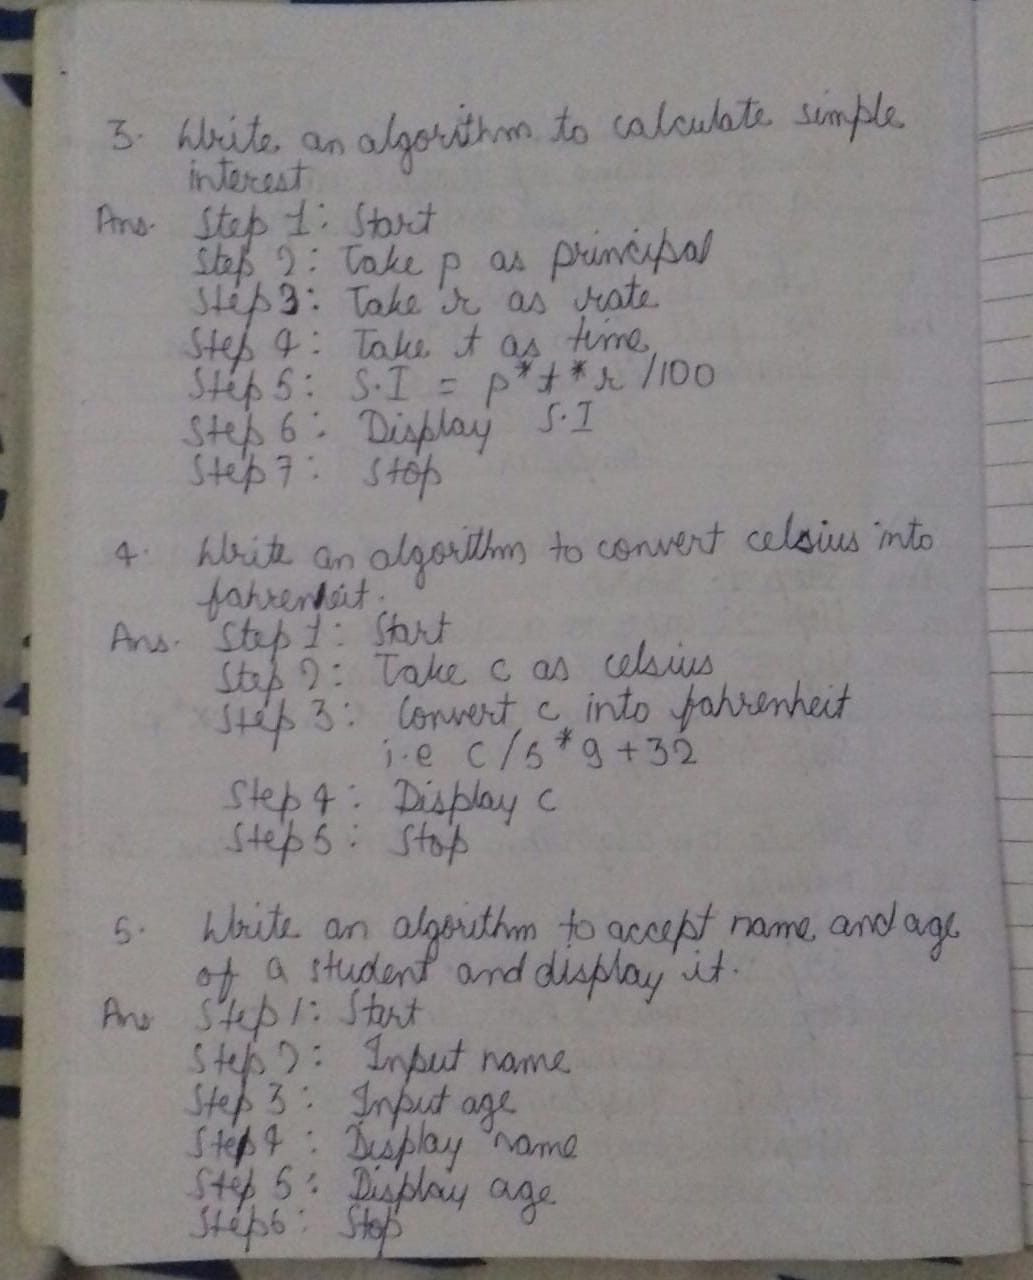 3. Write an algorithm to calculate simple
interest
Ans. Step 1: Start
Step 2: Take p as principal
Step 3: Take r as rate
Step 4: Take t as time
Step 5: S.I = p*t*r/100
Step 6: Display S.I
Step 7: Stop
4. Write an algorithm to convert celsius into
fahrenheit.
Ans. Step 1: Start
Step 2: Take c as celsius
Step 3: Convert c into fahrenheit
i.e c/5*9+32
Step 4: Display c
Step 5: Stop
5. Write an algorithm to accept name and age
of a student and display it.
Ans Step 1: Start
Step 2: Input name
Step 3: Input age
Step 4: Display name
Step 5: Display age
Step 6: Stop